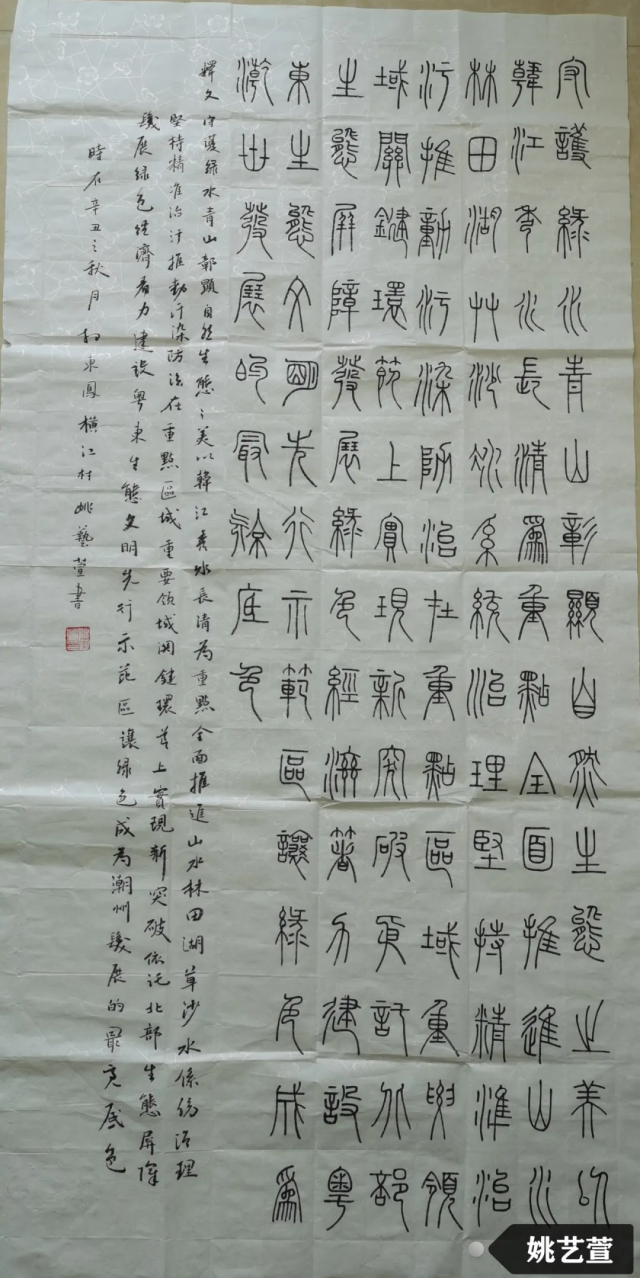 守護綠水青山彰顯自然生態之美以
韓江秀水長清爲重點全面推進山水
林田湖艸沙水系統治理堅持精準治
污推動污染防治在重點區域重要領
域關鍵環節上實現新突破依託北部
生態屏障發展綠色經濟著力建設粵
東生態文明先行示範區讓綠色成爲
潮州發展的最亮底色
釋文守護綠水青山彰顯自然生態之美以韓江秀水長清為重點全面推進山水林田湖草沙水係統治理
堅持精準治汙推動汙染防治在重點區域重要領域関鍵環節上實現新突破依託北部生態屏障
發展綠色經濟着力建設粵東生態文明先行示范區讓綠色成為潮州發展的最亮底色
時在辛丑之秋月於東鳳橫江村姚藝萱書
姚艺萱